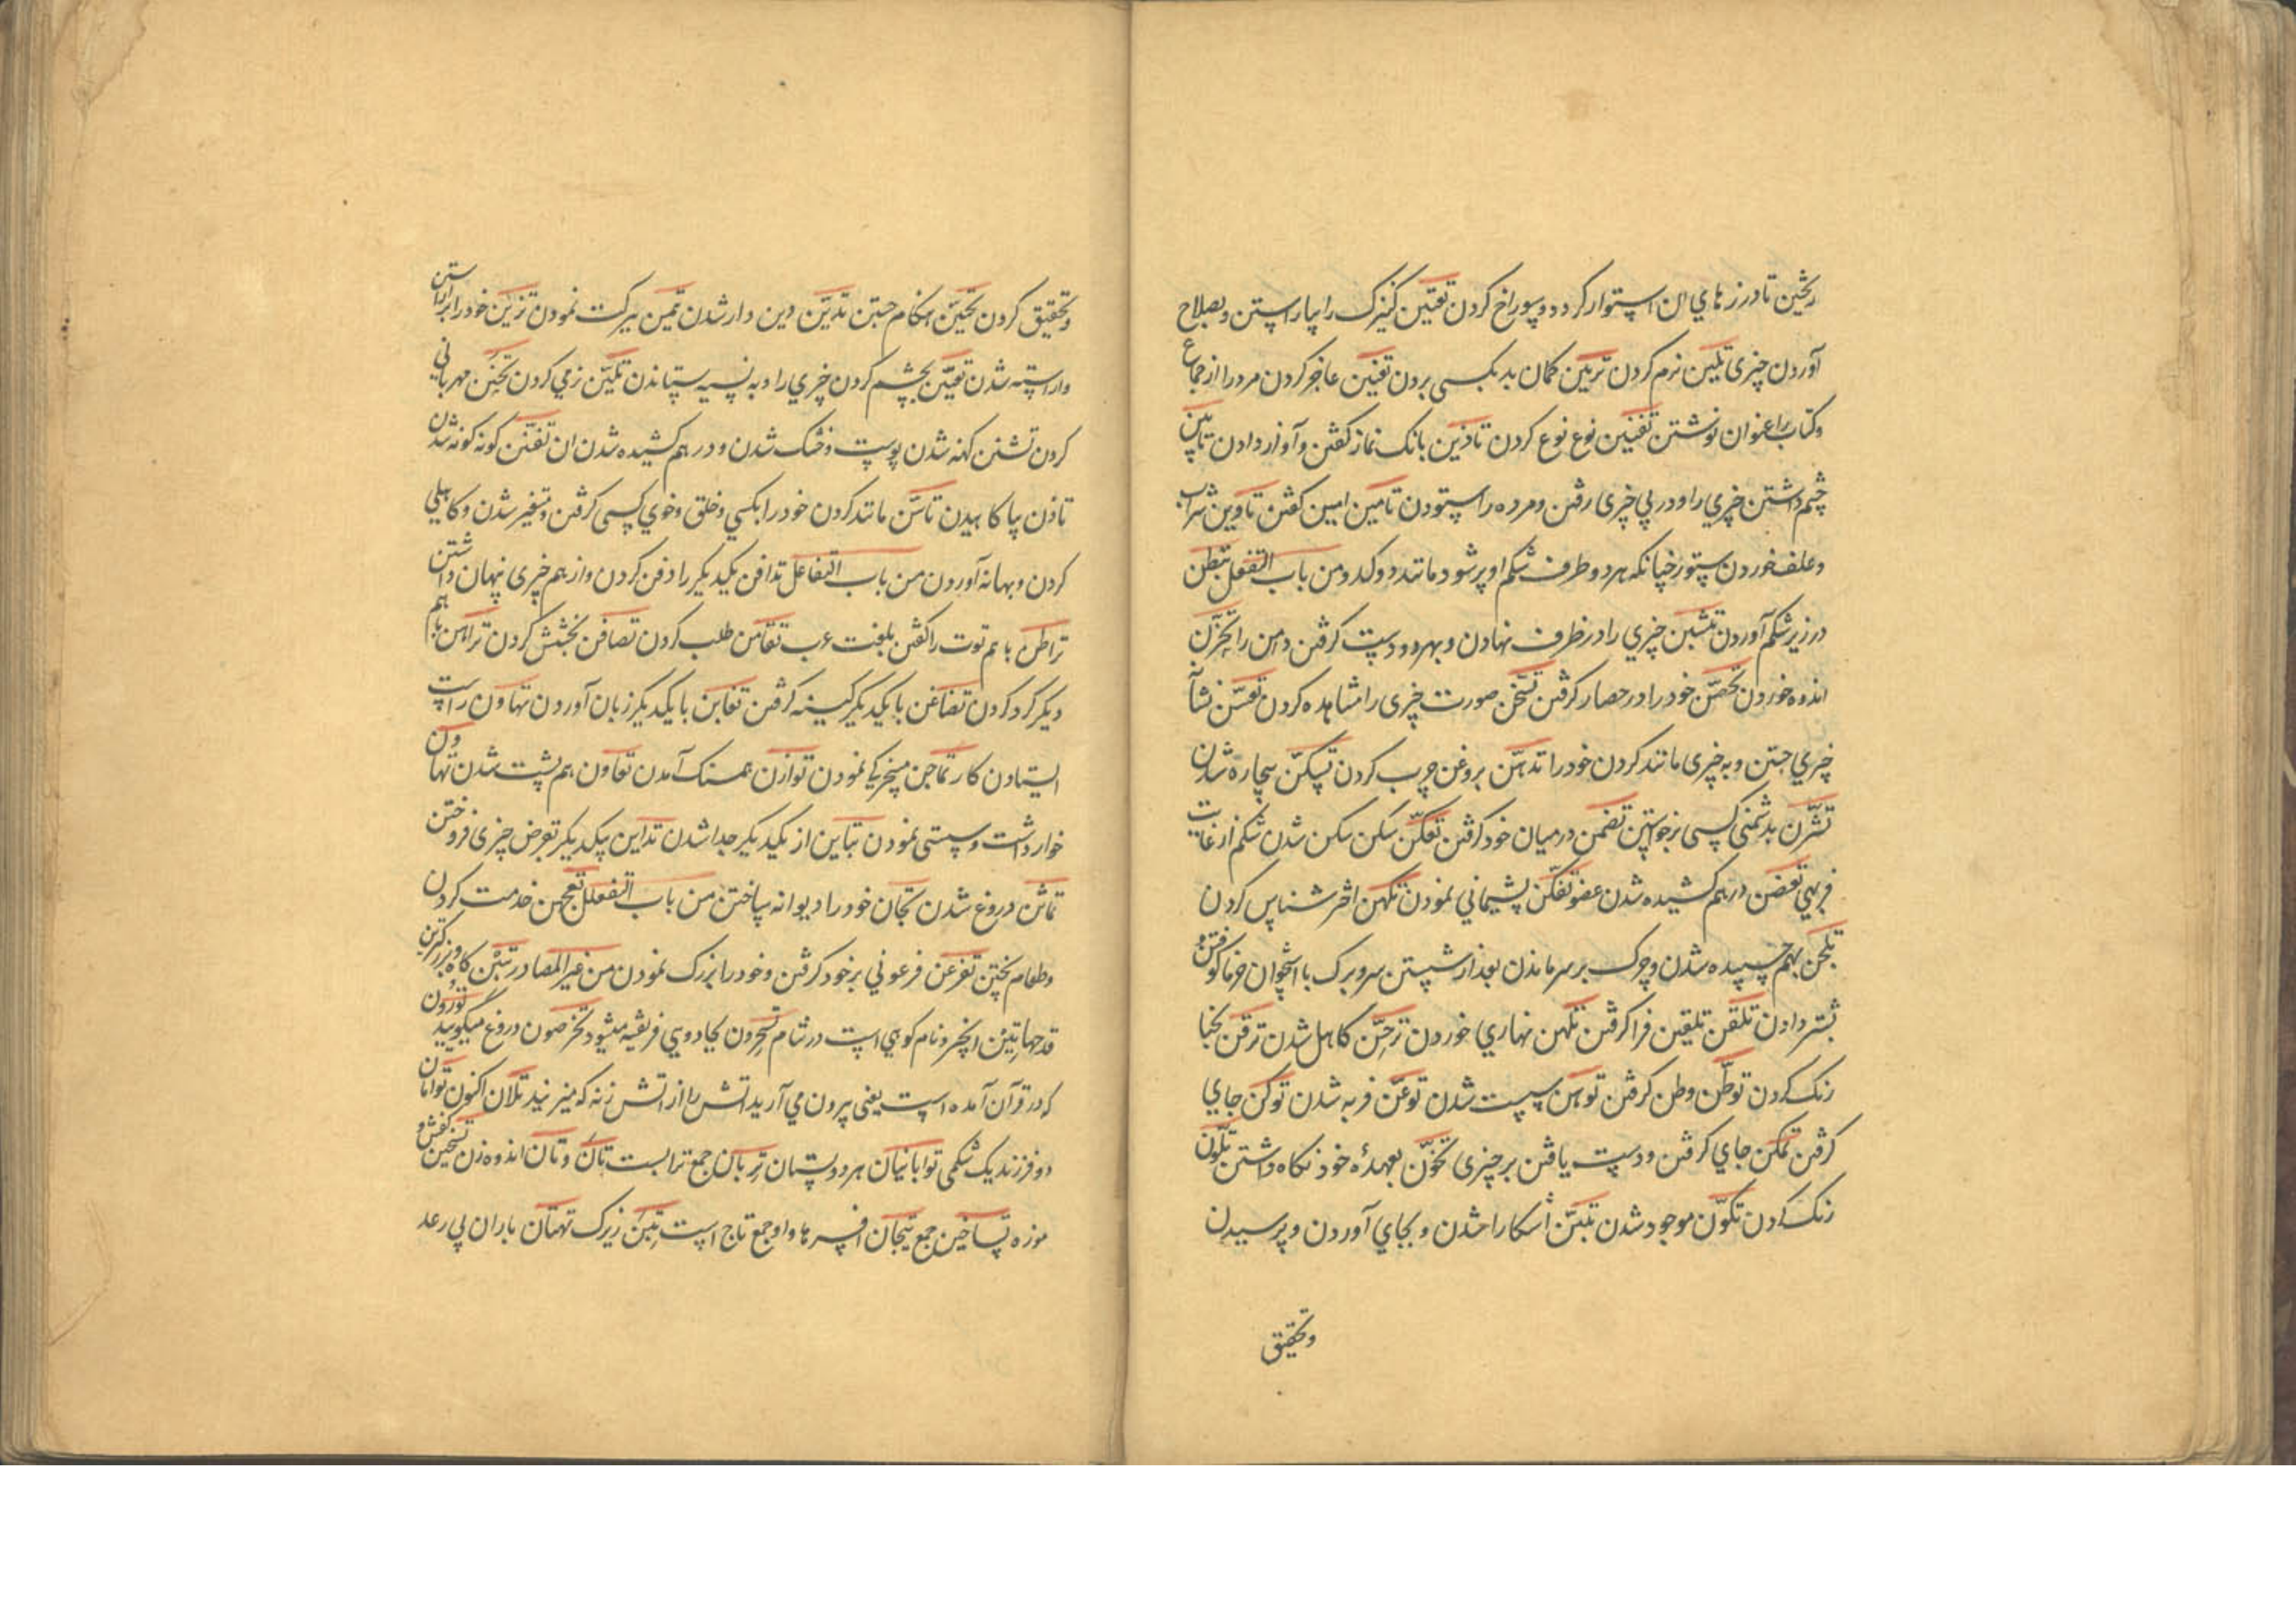 ریختن تا درزهای ان استوار کردد و سوراخ کردن تقیین کنیزک را بیاراستن و بصلاح
آوردن چیزی تلیین نرم کردن تزنین کمان بد بکسی بردن تعنین عاجز کردن مرد را از جماع
و کتاب را عنوان نوشتن تفنین نوع نوع کردن تاذین بانک نماز کفتن و آواز دادن تابین
چشم داشتن چیزی را و در پی چیزی رفتن و مرده را ستودن تامین امین کفتن تاوین شراب
و علف خوردن ستور چنانکه هر دو طرف شکم او پر شود مانند دو کدو من باب التفعل تبطن
در زیر شکم آوردن تثبین چیزی را در ظرف نهادن و بهر دو دست کرفتن دامن را تحزن
اندوه خوردن تحصن خود را در حصار کرفتن تسخن صورت چیزی را مشاهده کردن تعسن نشان
چیزی جستن و به چیزی مانند کردن خود را تدهن بروغن چرب کردن تمسکن بیچاره شدن
تشزن بدشمنی کسی برخواستن تضمن در میان خود کرفتن تعکن شکن شکن شدن شکم از غایت
فربهی تغضن در هم کشیده شدن عضو تفکن پشیمانی نمودن تکهن اختر شناس کردن
تلجن بهم چسپیده شدن و چرک بر سر ماندن بعد از شستن سر و برک با استخوان خرما کوفتن و
بشتر دادن تلقن تلقین فرا کرفتن تلهن نهاری خوردن ترجن کاهل شدن ترقن بحنا
رنک کردن توطن وطن کرفتن توهن سست شدن توعن فربه شدن توکن جای
کرفتن تمکن جای کرفتن و دست یافتن بر چیزی تخون بعهدهٔ خود نکاه داشتن تلون
رنک کردن تکون موجود شدن تبین آشکارا شدن و بجای آوردن و پرسیدن
و تحقیق
و تحقیق کردن تحین هنکام جستن تدین دین دار شدن تیمن ببرکت نمودن تزین خود را براراستن
و اراسته شدن تعین بچشم کردن چیزی را و به نسیه ستاندن تلین نرمی کردن تحنن مهربانی
کردن تشنن کهنه شدن پوست و خشک شدن و در هم کشیده شدن ان تفنن کونه کونه شدن
تاذن بیاکاهیدن تاسن مانند کردن خود را بکسی و خلق و خوی کسی کرفتن و متغیر شدن و کاهلی
کردن و بهانه آوردن من باب التفاعل تدافن یکدیکر را دفن کردن و از هم چیزی پنهان داشتن
تراطن با هم توت را کفتن بلغت عرب تقامن طلب کردن تصافن بخشش کردن تراهن با هم
دیکر کرو کردن تضاغن با یکدیکر کینه کرفتن تغابن با یکدیکر زیان آوردن تهاون راست
ایستادن کار تماجن مسخرکی نمودن توازن همسنک آمدن تعاون هم پشت شدن تهاون
خوار داشت و سستی نمودن تباین از یکدیکر جدا شدن تداین بیکدیکر بعوض چیزی فروختن
تماین دروغ شدن تجانن خود را دیوانه ساختن من باب التفعلل تعجهن خدمت کردن
و طعام پختن تفرعن فرعونی بر خود کرفتن و خود را بزرک نمودن من غیر المصادر تبن کاه و بزرکترین
قدحها تین انجیر و نام کوهی است در شام تسحرون بجادویی فریفته میشوید تخرصون دروغ میکویید تورون
که در قرآن آمده است یعنی بیرون می آرید اتش را از اتش زنه که میزنید تلان اکنون توامان
دو فرزند یک شکمی توابانیان هر دو پستان تربان جمع ترابست تبان و تان اندوه زن تسخین کفش و
موزه تساخین جمع تیجان افسرها و او جمع تاج است تبن زیرک تهتان باران پی رعد